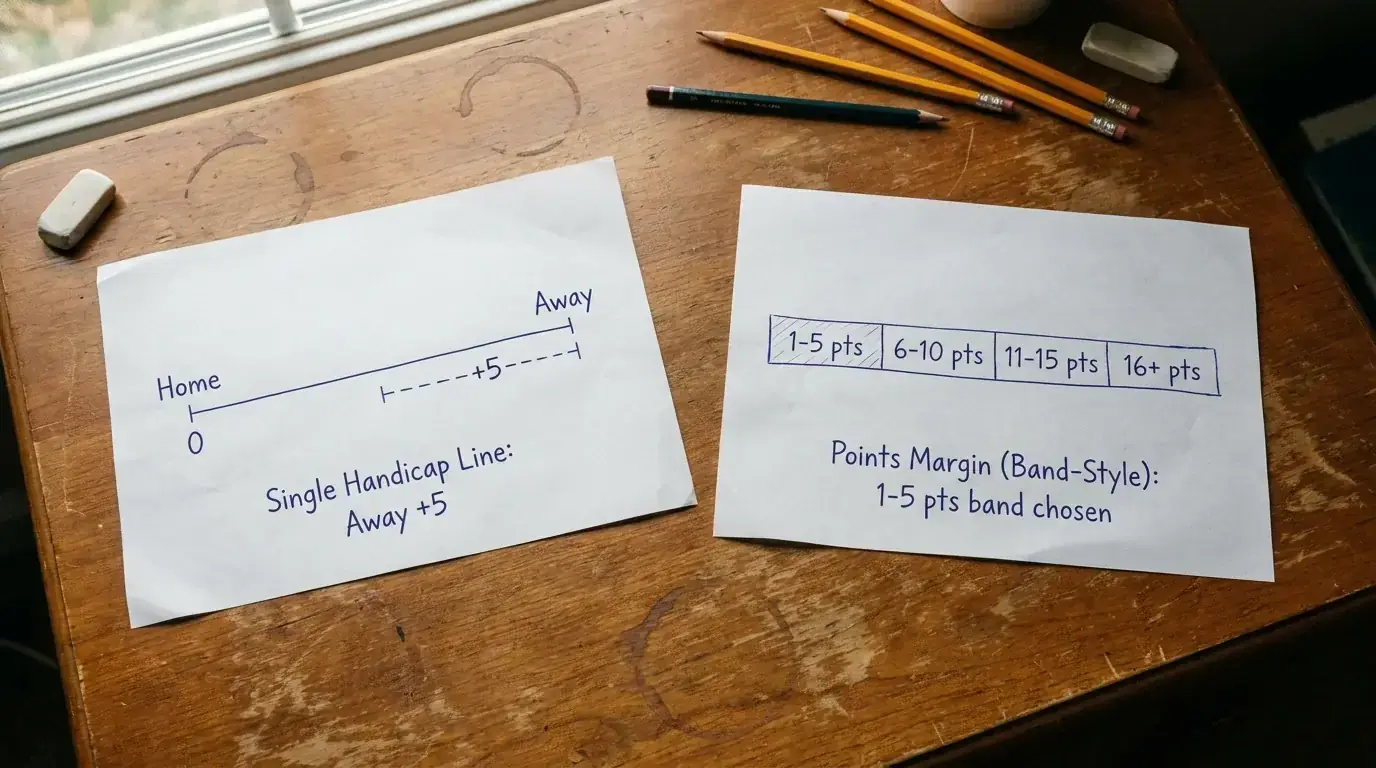 Away
+5
Home
0
Single Handicap Line:
Away +5
1-5 pts 6-10 pts 11-15 pts 16+ pts
Points Margin (Band-Style):
1-5 pts band chosen